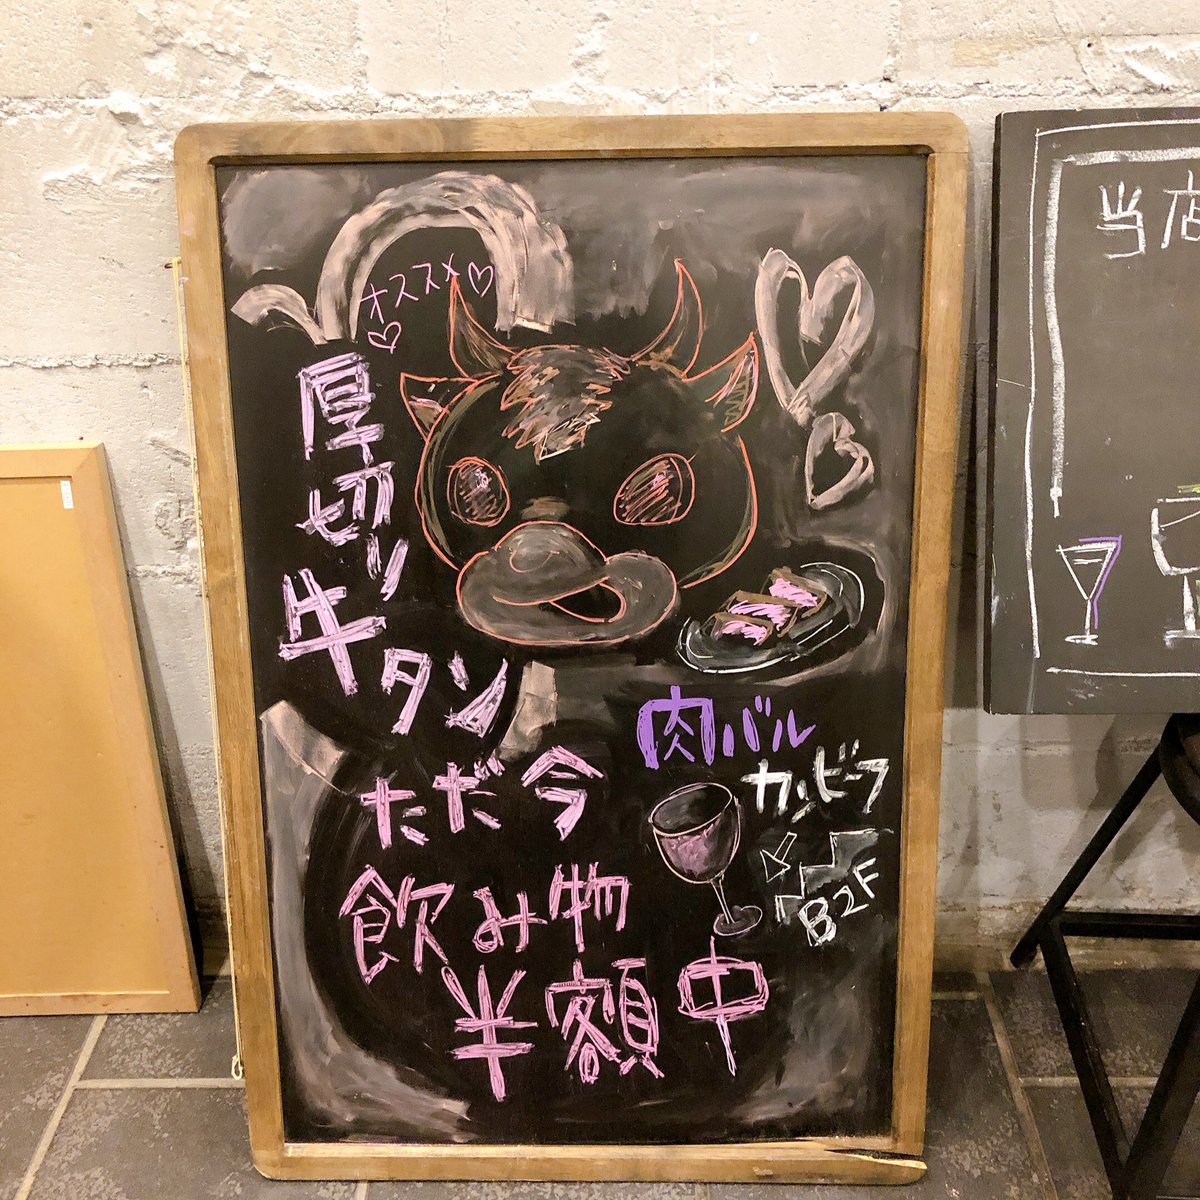 オススメ♡
♡
厚切り
牛タン
ただ今
飲み物
半額中
肉バル
B2F
当店